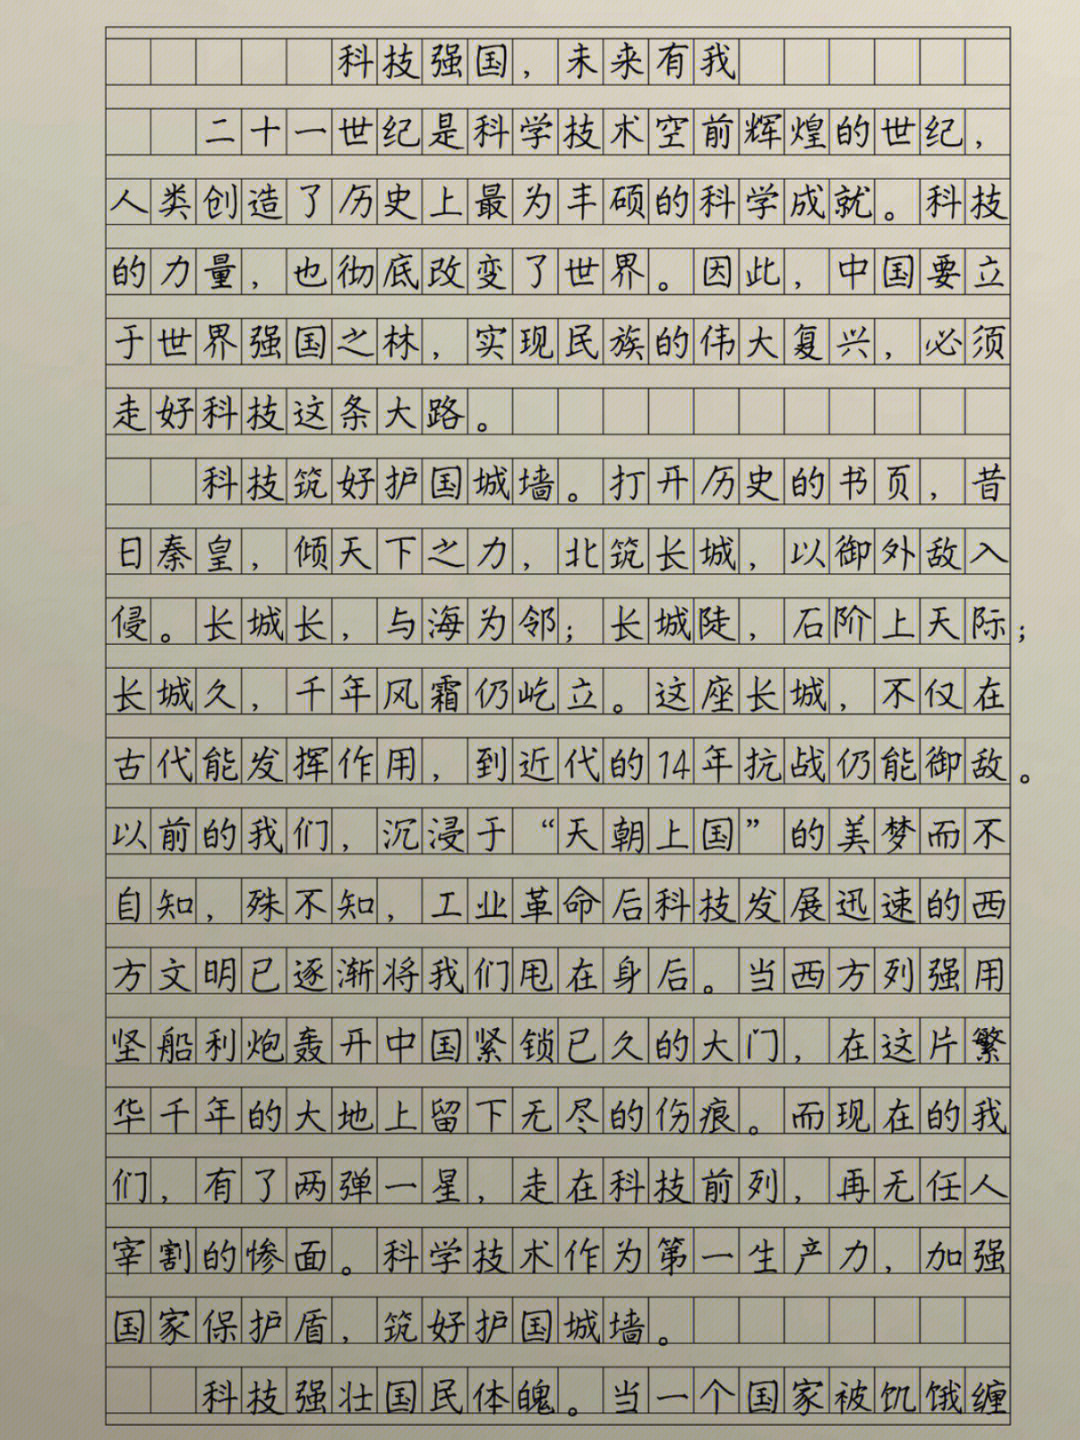 科技强国，未来有我
二十一世纪是科学技术空前辉煌的世纪，
人类创造了历史上最为丰硕的科学成就。科技
的力量，也彻底改变了世界。因此，中国要立
于世界强国之林，实现民族的伟大复兴，必须
走好科技这条大路。
科技筑好护国城墙。打开历史的书页，昔
日秦皇，倾天下之力，北筑长城，以御外敌入
侵。长城长，与海为邻；长城陡，石阶上天际；
长城久，千年风霜仍屹立。这座长城，不仅在
古代能发挥作用，到近代的14年抗战仍能御敌。
以前的我们，沉浸于“天朝上国”的美梦而不
自知，殊不知，工业革命后科技发展迅速的西
方文明已逐渐将我们甩在身后。当西方列强用
坚船利炮轰开中国紧锁已久的大门，在这片繁
华千年的大地上留下无尽的伤痕。而现在的我
们，有了两弹一星，走在科技前列，再无任人
宰割的惨面。科学技术作为第一生产力，加强
国家保护盾，筑好护国城墙。
科技强壮国民体魄。当一个国家被饥饿缠